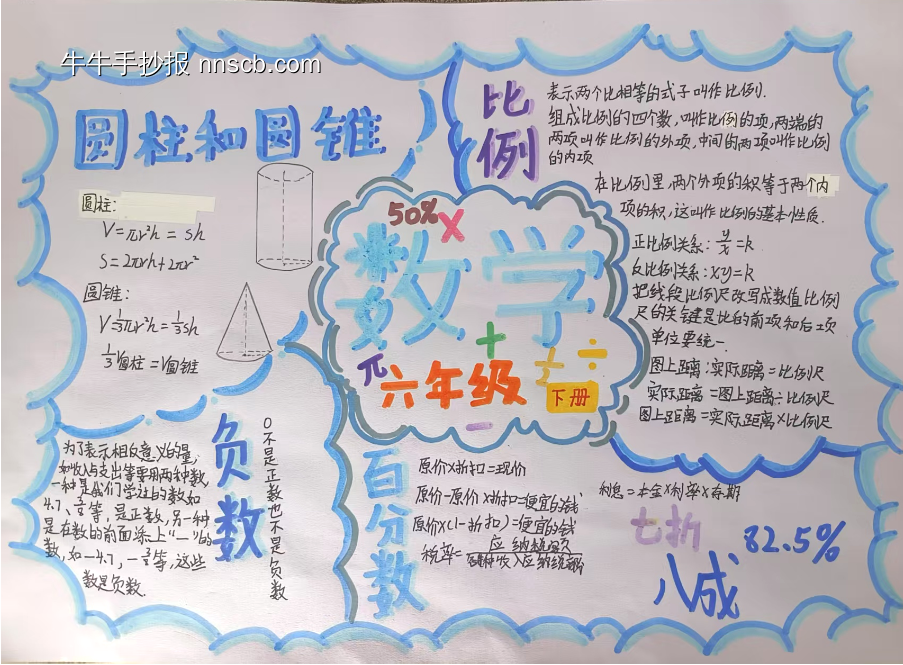 牛牛手抄报 nnscb.com
圆柱和圆锥
圆柱:
V=πr²h=sh
S=2πrh+2πr²
圆锥:
V=⅓πr²h=⅓sh
⅓V圆柱=V圆锥
比例
表示两个比相等的式子叫作比例.
组成比例的四个数,叫作比例的项,两端的
两项叫作比例的外项,中间的两项叫作比例
的内项
在比例里,两个外项的积等于两个内
项的积,这叫作比例的基本性质.
正比例关系:y/x=k
反比例关系:xy=k
把线段比例尺改写成数值比例
尺的关键是比的前项和后项
单位要统一
图上距离:实际距离=比例尺
实际距离=图上距离÷比例尺
图上距离=实际距离×比例尺
50%
×
数学
+
÷
π
½
六年级
下册
−
负数
为了表示相反意义的量,
如收入与支出等需用两种数,
一种是我们学过的数如
4.7、等,是正数,另一种
是在数的前面添上"—"的
数,如-4.7,等,这些
数是负数.
0不是正数也不是负数
百分数
原价×折扣=现价
原价-原价×折扣=便宜的钱
原价×(1-折扣)=便宜的钱
税率=应纳税额
利息=本金×利率×存期
七折
82.5%
八成